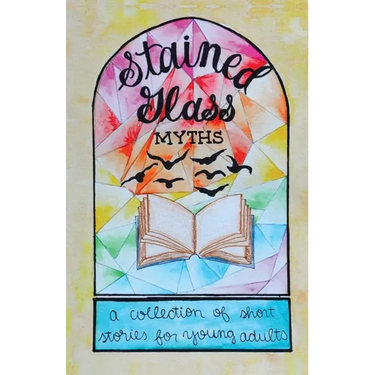 Stained
Glass
MYTHS
a collection of short
stories for young adults